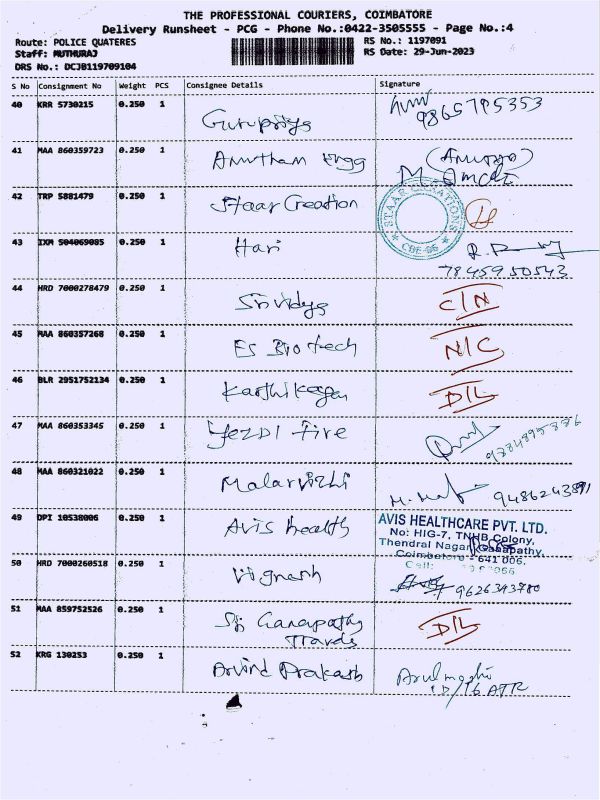 THE PROFESSIONAL COURIERS, COIMBATORE
Delivery Runsheet - PCG - Phone No.:0422-3505555 - Page No.:4
Route: POLICE QUATERES RS No.: 1197091
Staff: MUTHURAJ RS Date: 29-Jun-2023
DRS No.: DCJB119709104
S No Consignment No Weight PCS Consignee Details Signature
40 KRR 5730215 0.250 1 Gurupriya 9865795353
41 MAA 860359723 0.250 1 Amutham Engg
42 TRP 5881479 0.250 1 Staar Creation STAAR CREATIONS CBE-06
43 IXM 504069085 0.250 1 Hari
7845950543
44 HRD 7000278479 0.250 1 Srividya C/N
45 MAA 860357268 0.250 1 ES Biotech N/C
46 BLR 2951752134 0.250 1 Karthikeyan D/L
47 MAA 860353345 0.250 1 YEZDI Fire
48 MAA 860321022 0.250 1 Malarvizhi
49 DPI 10538006 0.250 1 Avis health AVIS HEALTHCARE PVT. LTD.
No: HIG-7, TNHB Colony,
Thendral Nagar, Ganapathy,
Coimbatore - 641 006.
Cell:
50 HRD 7000260518 0.250 1 Vignesh 9626343780
51 MAA 859752526 0.250 1 Sri Ganapathy D/L
Trards
52 KRG 130253 0.250 1 Arvind Prakash